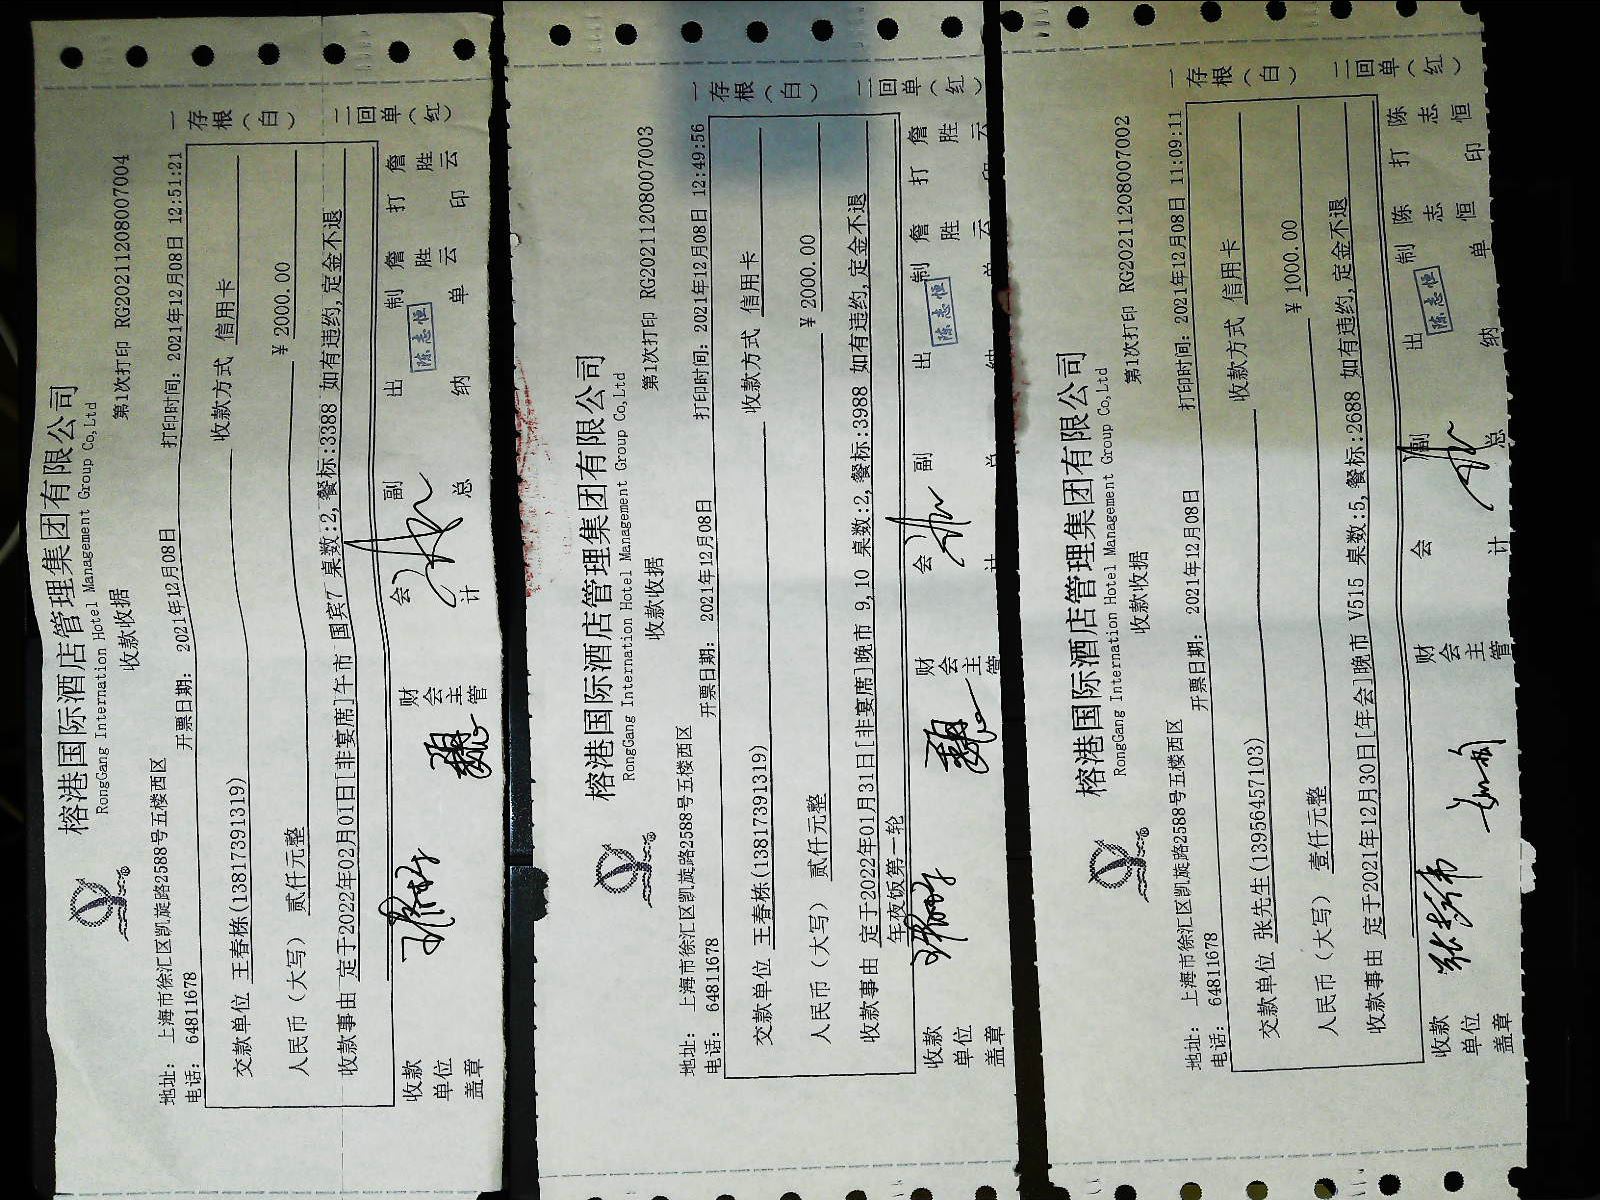 榕港国际酒店管理集团有限公司
RongGang International Hotel Management Group Co,Ltd
收款收据
第1次打印 RG202112080070​04
地址: 上海市徐汇区凯旋路2588号五楼西区
电话: 64811678
开票日期: 2021年12月08日
打印时间: 2021年12月08日 12:51:21
交款单位 王春栋(13817391319)
收款方式 信用卡
人民币(大写) 贰仟元整
¥ 2000.00
收款事由 定于2022年02月01日[非宴席]午市 国宾7 桌数:2,餐标:3388 如有违约,定金不退
一存根(白)
二回单(红)
收款单位盖章
财会主管
会计
副总
出纳
陈志恒
制单
詹胜云
打印
詹胜云
榕港国际酒店管理集团有限公司
RongGang International Hotel Management Group Co,Ltd
收款收据
第1次打印 RG20211208007003
地址: 上海市徐汇区凯旋路2588号五楼西区
电话: 64811678
开票日期: 2021年12月08日
打印时间: 2021年12月08日 12:49:56
交款单位 王春栋(13817391319)
收款方式 信用卡
人民币(大写) 贰仟元整
¥ 2000.00
收款事由 定于2022年01月31日[非宴席]晚市 9,10 桌数:2,餐标:3988 如有违约,定金不退
年夜饭第一轮
一存根(白)
二回单(红)
收款单位盖章
财会主管
会计
副总
出纳
陈志恒
制单
詹胜云
打印
詹胜云
榕港国际酒店管理集团有限公司
RongGang International Hotel Management Group Co,Ltd
收款收据
第1次打印 RG20211208007002
地址: 上海市徐汇区凯旋路2588号五楼西区
电话: 64811678
开票日期: 2021年12月08日
打印时间: 2021年12月08日 11:09:11
交款单位 张先生(13956457103)
收款方式 信用卡
人民币(大写) 壹仟元整
¥ 1000.00
收款事由 定于2021年12月30日[年会]晚市 V515 桌数:5,餐标:2688 如有违约,定金不退
一存根(白)
二回单(红)
收款单位盖章
财会主管
会计
副总
出纳
陈志恒
制单
陈志恒
打印
陈志恒